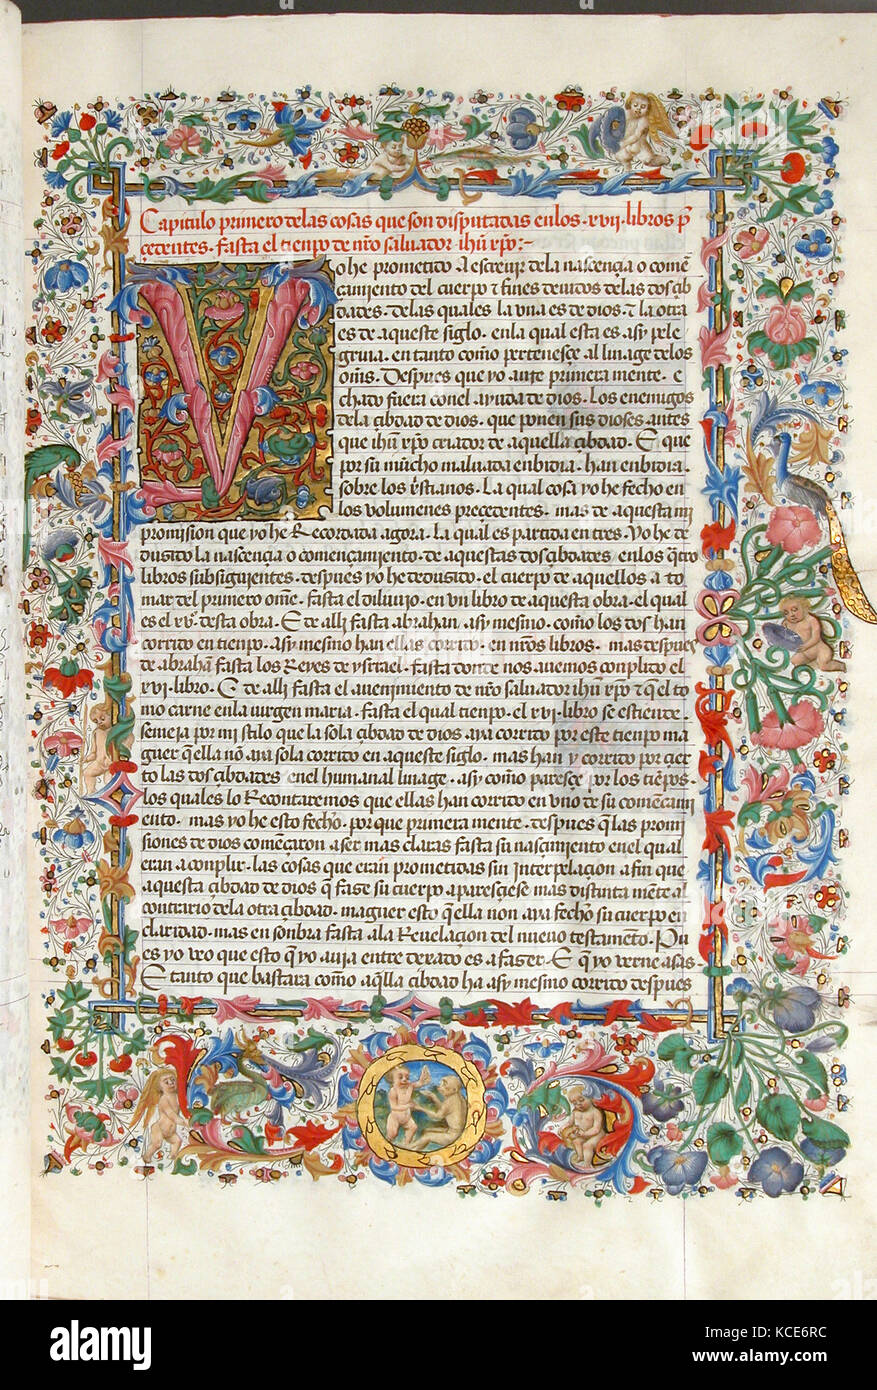 Capitulo primero de las cosas que son disputadas en los .xvii. libros p̃
çedentes . fasta el tienpo de nr̃o saluador ih̃u xp̃o :~
Yo he prometido a escreuir de la nasçençia o comẽ
çamiento del cuerpo ⁊ fines deuidos de las dos çib
dades . de las quales la vna es de dios . ⁊ la otra
es de aqueste siglo . en la qual esta es asy pele
grina . en tanto com̃o pertenesçe al linage de los
om̃s . Despues que yo ante primera mente . e
chado fuera con el ayuda de dios . Los enemigos
de la çibdad de dios . que ponen sus dioses antes
que ih̃u xp̃o criador de aquella çibdad . E que
por su mũcho maluada enbidia . han enbidia .
sobre los xp̃stianos . La qual cosa yo he fecho en
los volumenes precedentes . mas de aquesta mi
promision que yo he Recordada agora . La qual es partida en tres . Yo he de
dusido la nasçençia o començamiento . de aquestas dos çibdades en los q̃tro
libros subsiguientes . despues yo he dedusido . el cuerpo de aquellos a to
mar del primero om̃e . fasta el diluuio . en vn libro de aquesta obra . el qual
es el xv̊. desta obra . E de alli fasta abrahan . asy mesmo . com̃o los dos han
corrido en tienpo . asy mesmo han ellas corrido . en nr̃os libros . mas despues
de abrahã fasta los Reyes de ysrael . fasta donde nos auemos conplido el
xvi . libro . E de alli fasta el auenimiento de nr̃o saluador ih̃u xp̃o ⁊ q̃ el to
mo carne en la uirgen maria . fasta el qual tienpo . el xvi . libro se estiende .
semeja por mi stilo que la sola çibdad de dios aya corrido por este tienpo ma
guer q̃ ella nõ aya sola corrido en aqueste siglo . mas han y corrido por çier
to las dos çibdades en el humanal linage . asy com̃o paresçe por los tiẽpos .
los quales lo Recontaremos que ellas han corrido en vno de su comẽcami
ento . mas yo he esto fecho . por que primera mente . despues q̃ las promi
siones de dios començaron a ser mas claras fasta su nasçimiento en el qual
eran a conplir . las cosas que eran prometidas sin interpelaçion a fin que
aquesta çibdad de dios q̃ fase su cuerpo aparesçiese mas distinta mẽte al
contrario de la otra çibdad . maguer esto q̃ ella non aya fecho su cuerpo en
claridad . mas en sonbra fasta a la Reuelaçion del nueuo testamẽto . Pu
es yo veo que esto q̃ yo auia entre dexado es a faser . E q̃ yo verne asas .
E tanto que bastara com̃o aq̃lla çibdad ha asy mesmo corrido despues
alamy stock photo
KCE6RC
www.alamy.com